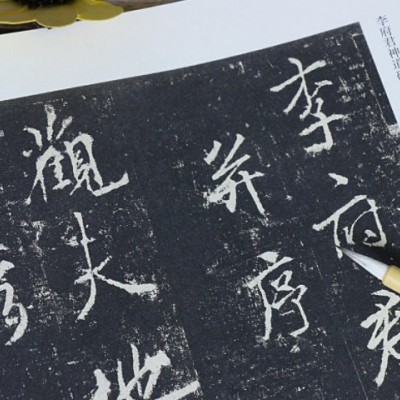 李府君神道
李府君
并序
觀夫地